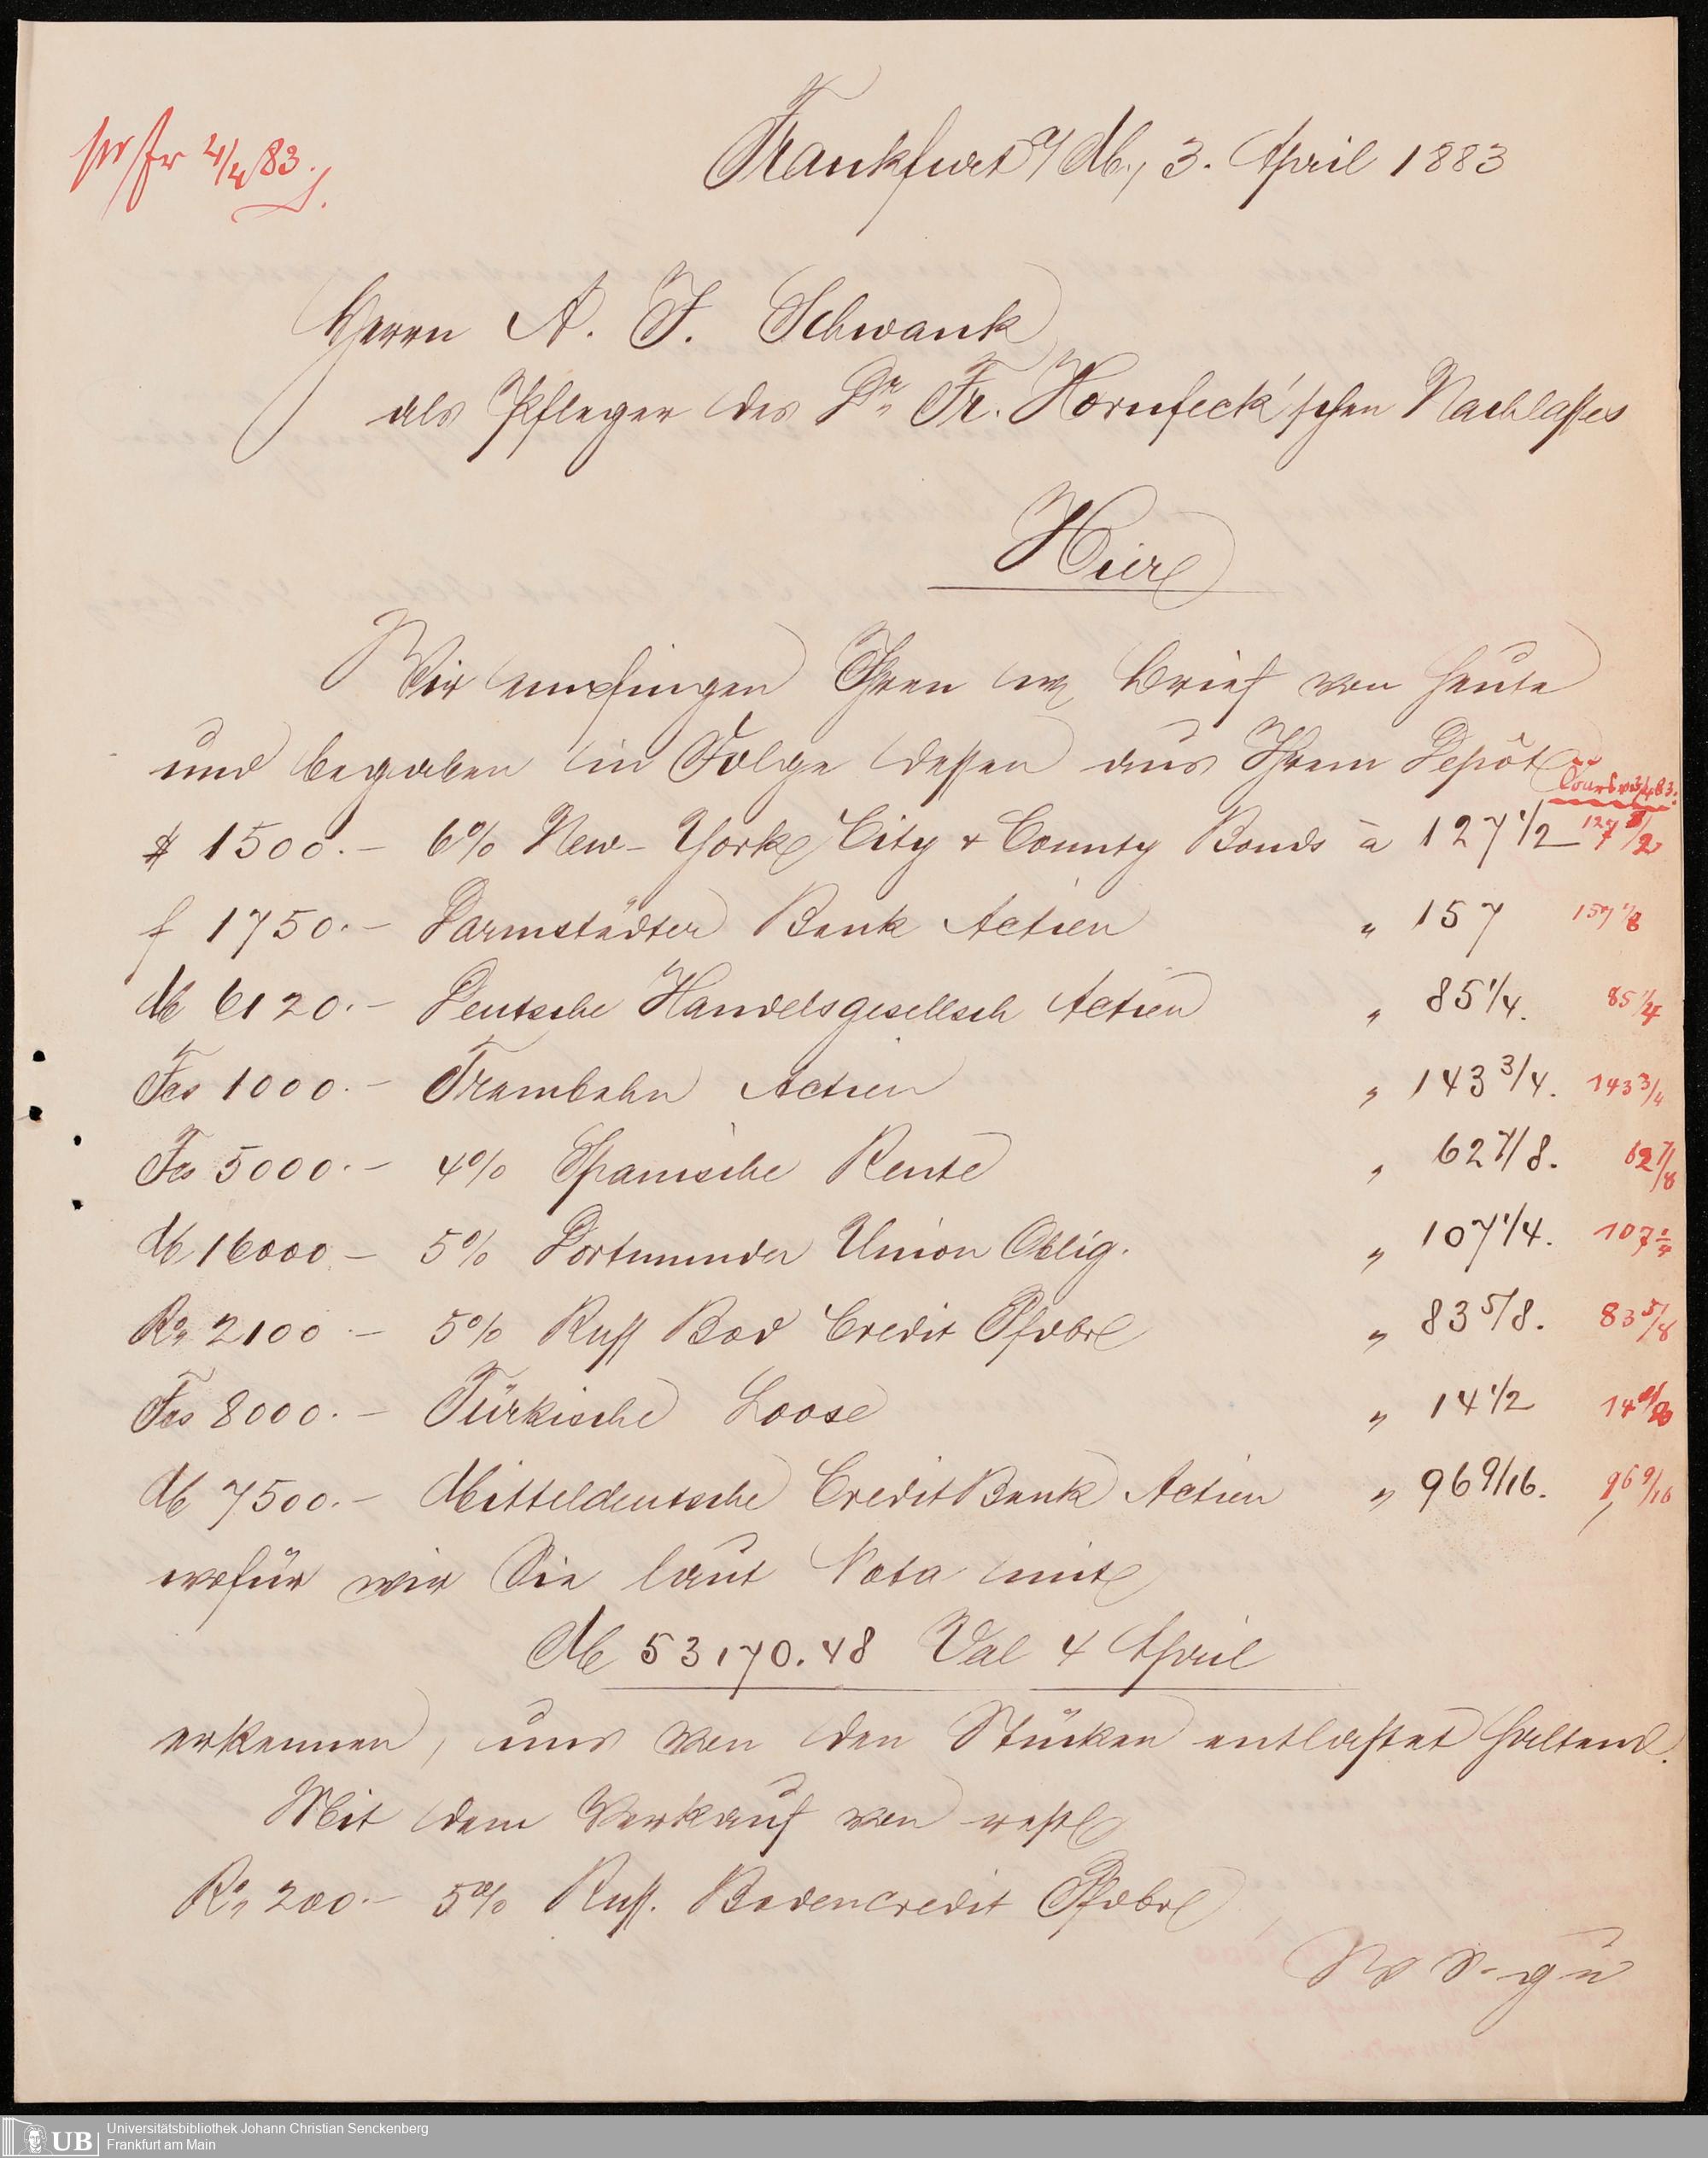 4/4 83.
Frankfurt a/M., 3. April 1883
Herrn A. F. Schwank
als Pfleger des Dr Fr. Hornfeck'schen Nachlasses
Hier
Wir empfingen Ihren Brief von heute
und begaben in Folge dessen aus Ihrem Depôt
Cours v 3/4 83.
$ 1500.– 6% New-York City & County Bonds à 127 1/2 127 1/2
f 1750.– Darmstädter Bank Actien " 157 157 1/8
M 6120.– Deutsche Handelsgesellsch Actien " 85 1/4. 85 1/4
Fcs 1000.– Trambahn Actien " 143 3/4. 143 3/4
Fcs 5000.– 4% Spanische Rente " 62 7/8. 62 7/8
M 16000– 5% Dortmunder Union Oblig. " 107 1/4. 107 1/4
Ro 2100.– 5% Russ Bod Credit Pfdbr " 83 5/8. 83 5/8
Fcs 8000.– Türkische Loose " 14 1/2 14
M 7500.– Mitteldeutsche CreditBank Actien " 96 9/16. 96 9/16
wofür wir Sie laut Nota mit
M 53170.48 Val 4 April
erkennen, uns von den Stücken entlastet haltend.
Mit dem Verkauf von restl
Ro 200.– 5% Russ. Bodencredit Pfdbr
Universitätsbibliothek Johann Christian Senckenberg
UB Frankfurt am Main